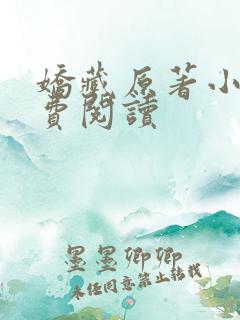 嬌藏 原著小
費閱讀
墨墨卿卿
未经同意禁止转载